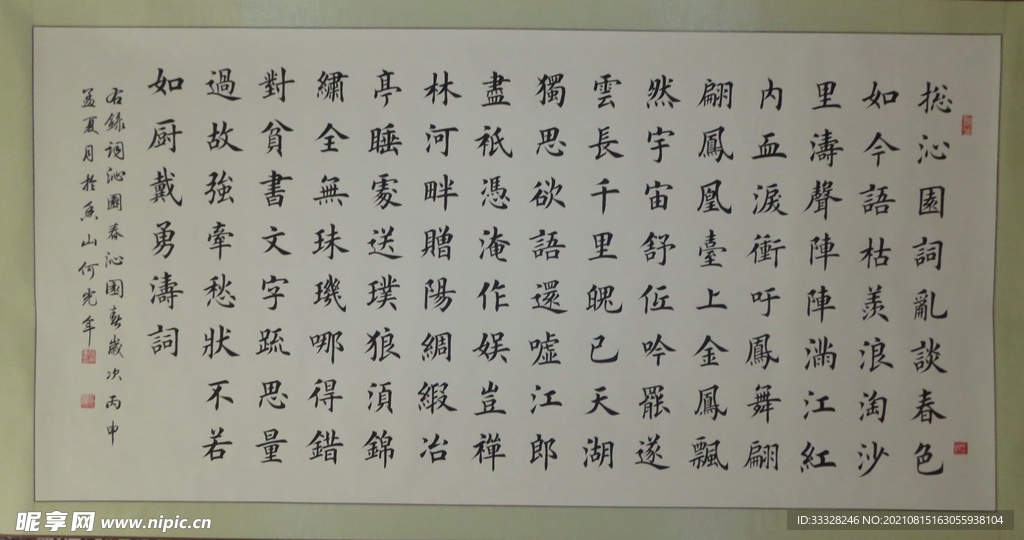 捴沁園詞亂談春色
如今語枯羨浪淘沙
里濤聲陣陣滿江紅
内血淚衝吁鳳舞翩
翩鳳凰臺上金鳳飄
然宇宙舒征吟罷遂
雲長千里魄已天湖
獨思欲語還噓江郎
盡祇憑淹作娱豈禪
林河畔贈陽綢緞冶
亭睡處送璞狼須錦
繡全無珠璣哪得錯
對貧書文字疏思量
過故強牽愁狀不若
如厨戴勇濤詞
右録詞沁園春沁園春歲次丙申
孟夏月於香山何光年
昵享网 www.nipic.cn
ID:33328246 NO:20210815163055938104